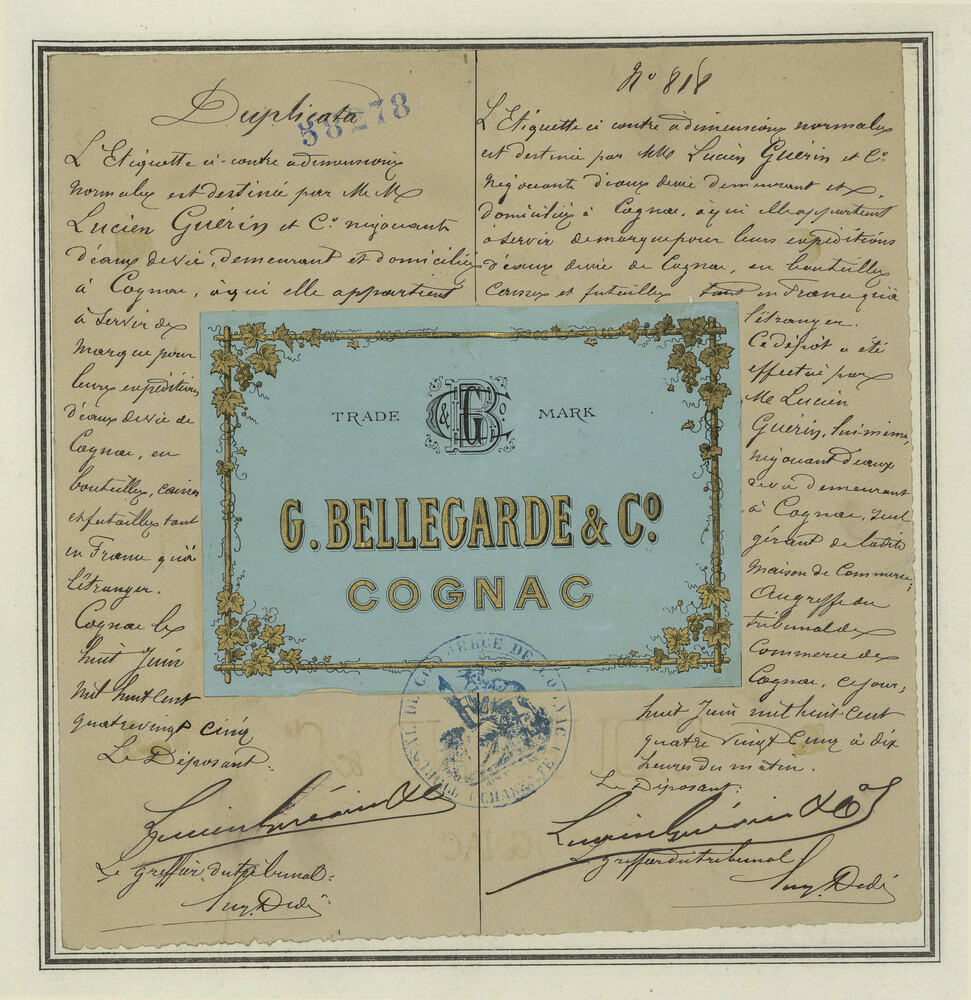 Duplicata
58278
L'Etiquette ci-contre à dimensions
normales est destinée par M M
Lucien Guérin et Cº négociants
d'eaux de vie, demeurant et domiciliés
à Cognac, à qui elle appartient
à servir de
marque pour
leurs expéditions
d'eaux de vie de
Cognac, en
bouteilles, caisses
et futailles tant
en France qu'à
l'étranger.
Cognac le
huit Juin
mil huit cent
quatre vingt cinq
Le Déposant:
Lucien Guérin & Co
Le greffier du tribunal:
Nº 818
L'Etiquette ci contre à dimensions normales
est destinée par MM Lucien Guérin et Cº
négociants d'eaux de vie demeurant et
domiciliés à Cognac, à qui elle appartient
à servir de marque pour leurs expéditions
d'eaux de vie de Cognac, en bouteilles
caisses et futailles tant en France qu'à
l'étranger.
Ce dépôt a été
effectué par
M. Lucien
Guérin, lui-même,
négociant d'eaux
de vie demeurant
à Cognac, seul
gérant de la dite
maison de Commerce,
au greffe du
tribunal de
Commerce de
Cognac, ce jour,
huit Juin mil huit cent
quatre vingt cinq à dix
heures du matin.
Le Déposant:
Lucien Guérin & Co
Le greffier du tribunal
TRADE MARK
G. BELLEGARDE & Cº
COGNAC
TRIBUNAL DE COMMERCE DE COGNAC (CHARENTE)